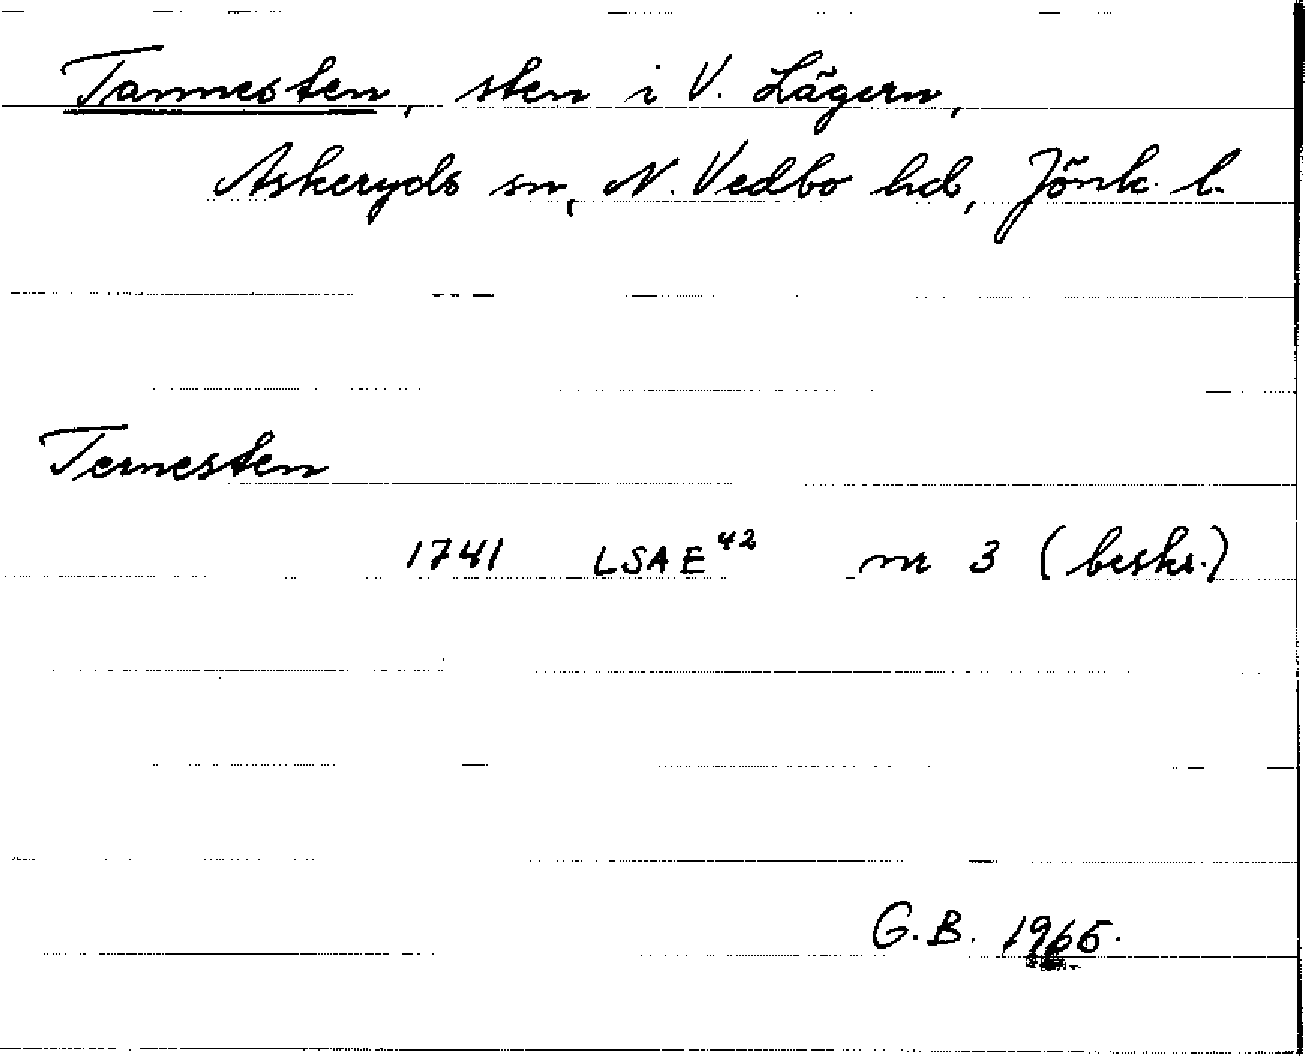 Tarnesten, sten i V. Lägern,
Askeryds sn, N. Vedbo hd, Jönk. l.
Ternesten
1741 LSA E⁴² nr 3 (beskr.)
G.B. 1965.